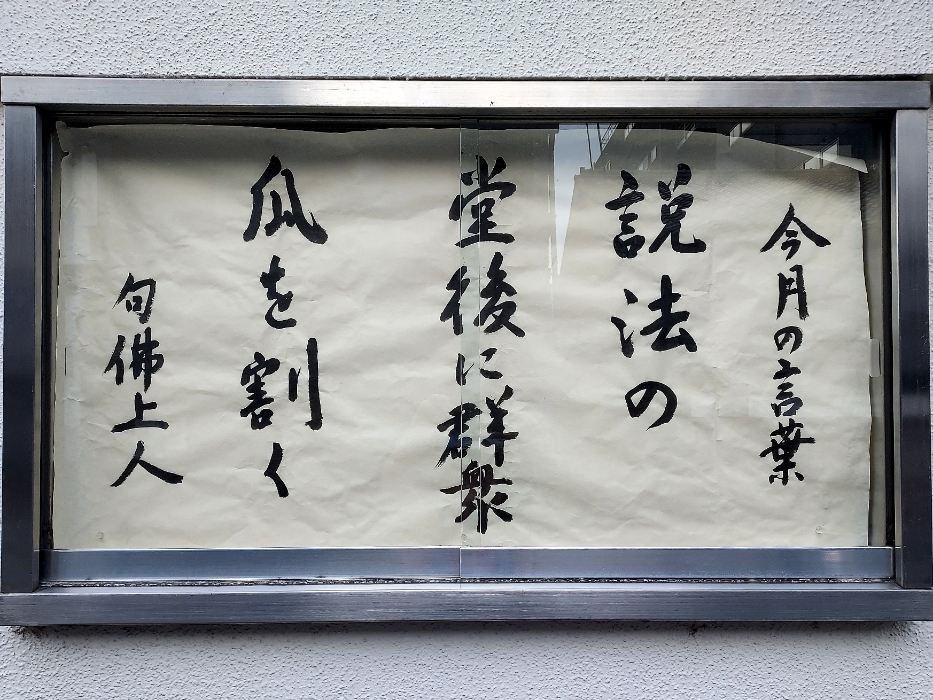 今月の言葉
説法の
堂後に群衆
瓜を割く
句佛上人